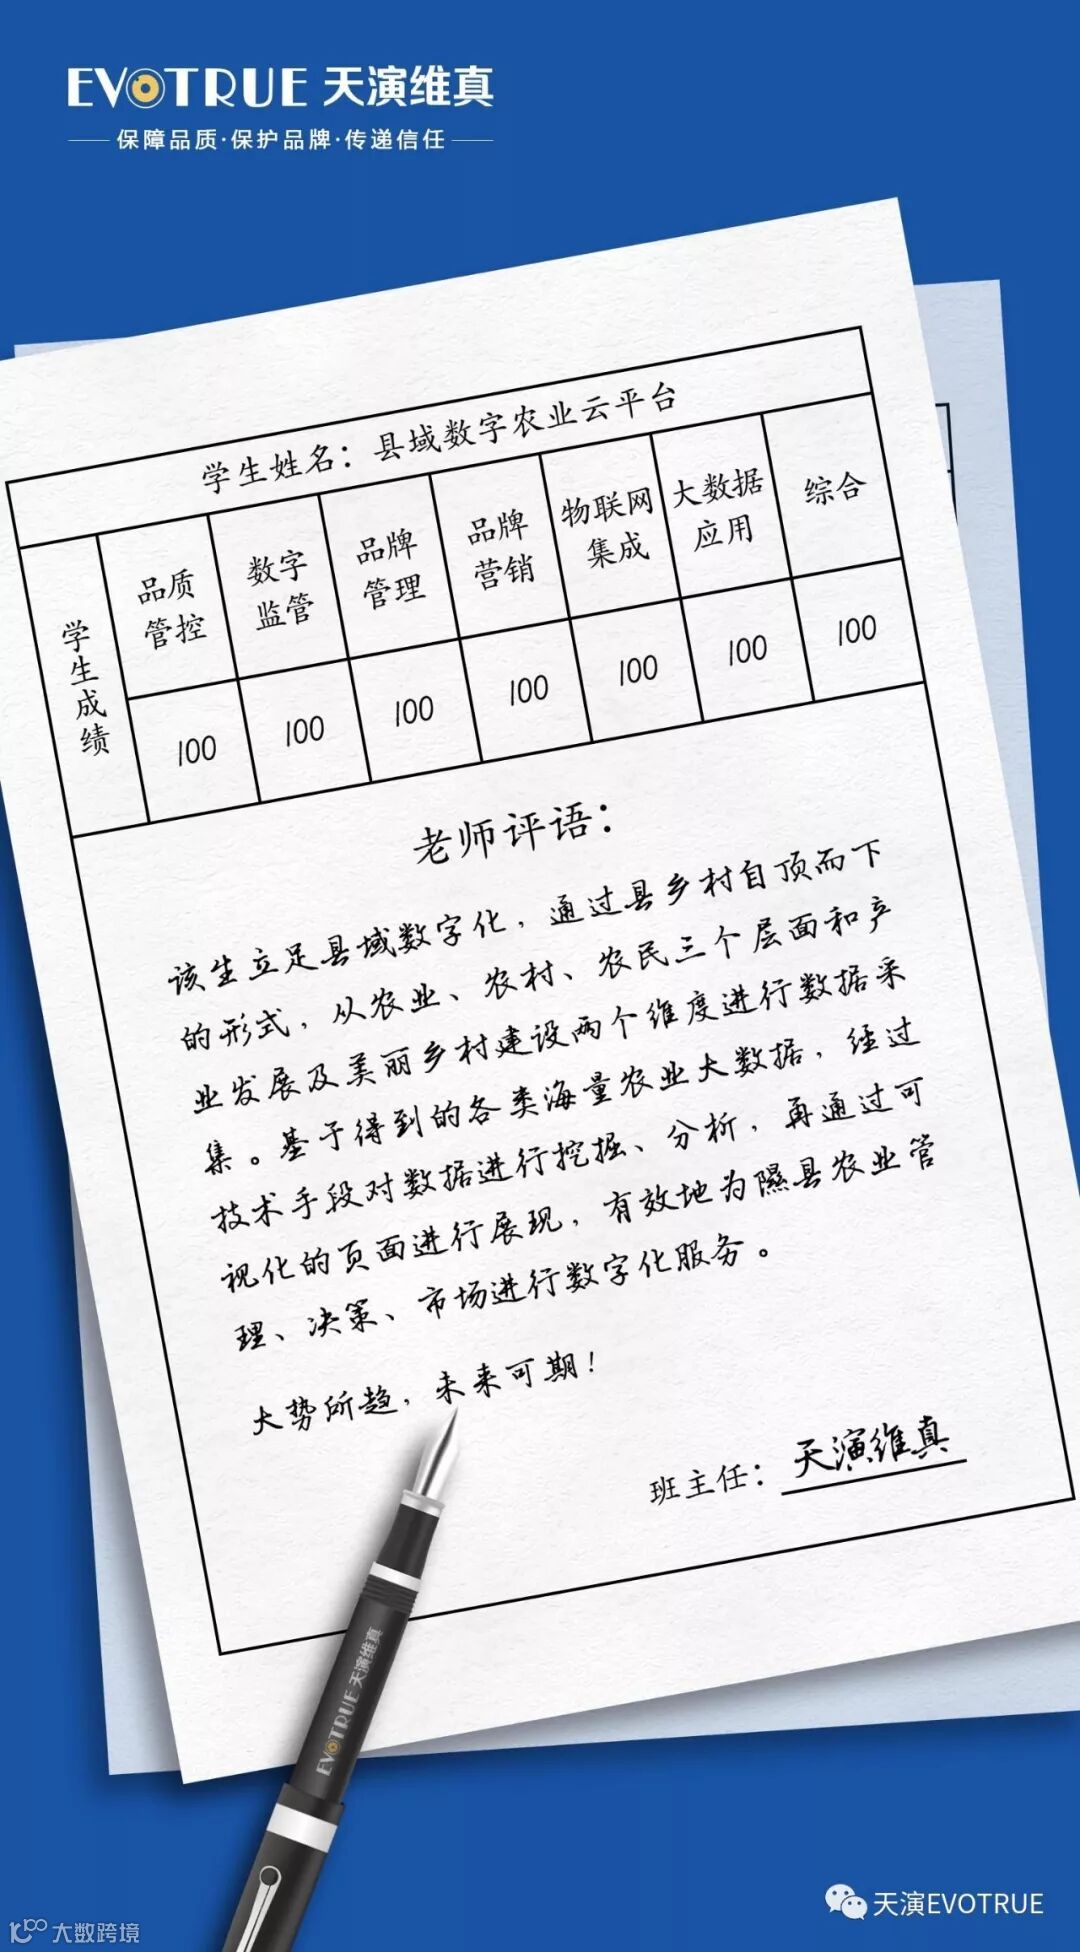 EVOTRUE 天演维真
保障品质·保护品牌·传递信任
学生姓名：县域数字农业云平台
学生成绩
品质管控 数字监管 品牌管理 品牌营销 物联网集成 大数据应用 综合
100 100 100 100 100 100 100
老师评语：
该生立足县域数字化，通过县乡村自顶而下
的形式，从农业、农村、农民三个层面和产
业发展及美丽乡村建设两个维度进行数据采
集。基于得到的各类海量农业大数据，经过
技术手段对数据进行挖掘、分析，再通过可
视化的页面进行展现，有效地为隰县农业管
理、决策、市场进行数字化服务。
大势所趋，未来可期！
班主任：天演维真
EVOTRUE 天演维真
天演EVOTRUE
大数跨境